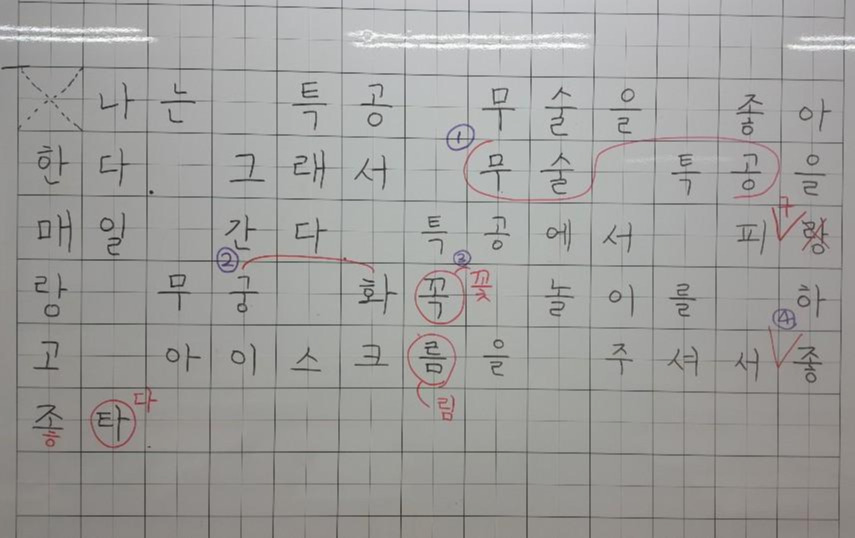 나는 특공 무술을 좋아
① 한다. 그래서 무술 특공을
매일 간다 특공에서 피구랑
② ③ 랑 무궁 화 꼭꽃 놀이를 하
④ 고 아이스크름을 주셔서 좋
림
좋타다.